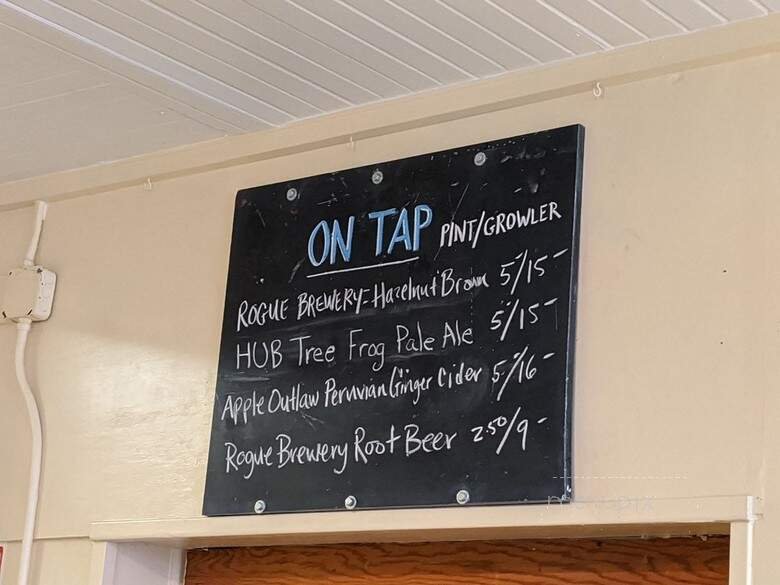 ON TAP PINT/GROWLER
ROGUE BREWERY-Hazelnut Brown 5/15-
HUB Tree Frog Pale Ale 5/15-
Apple Outlaw Peruvian Ginger Cider 5/16-
Rogue Brewery Root Beer 2.50/9-